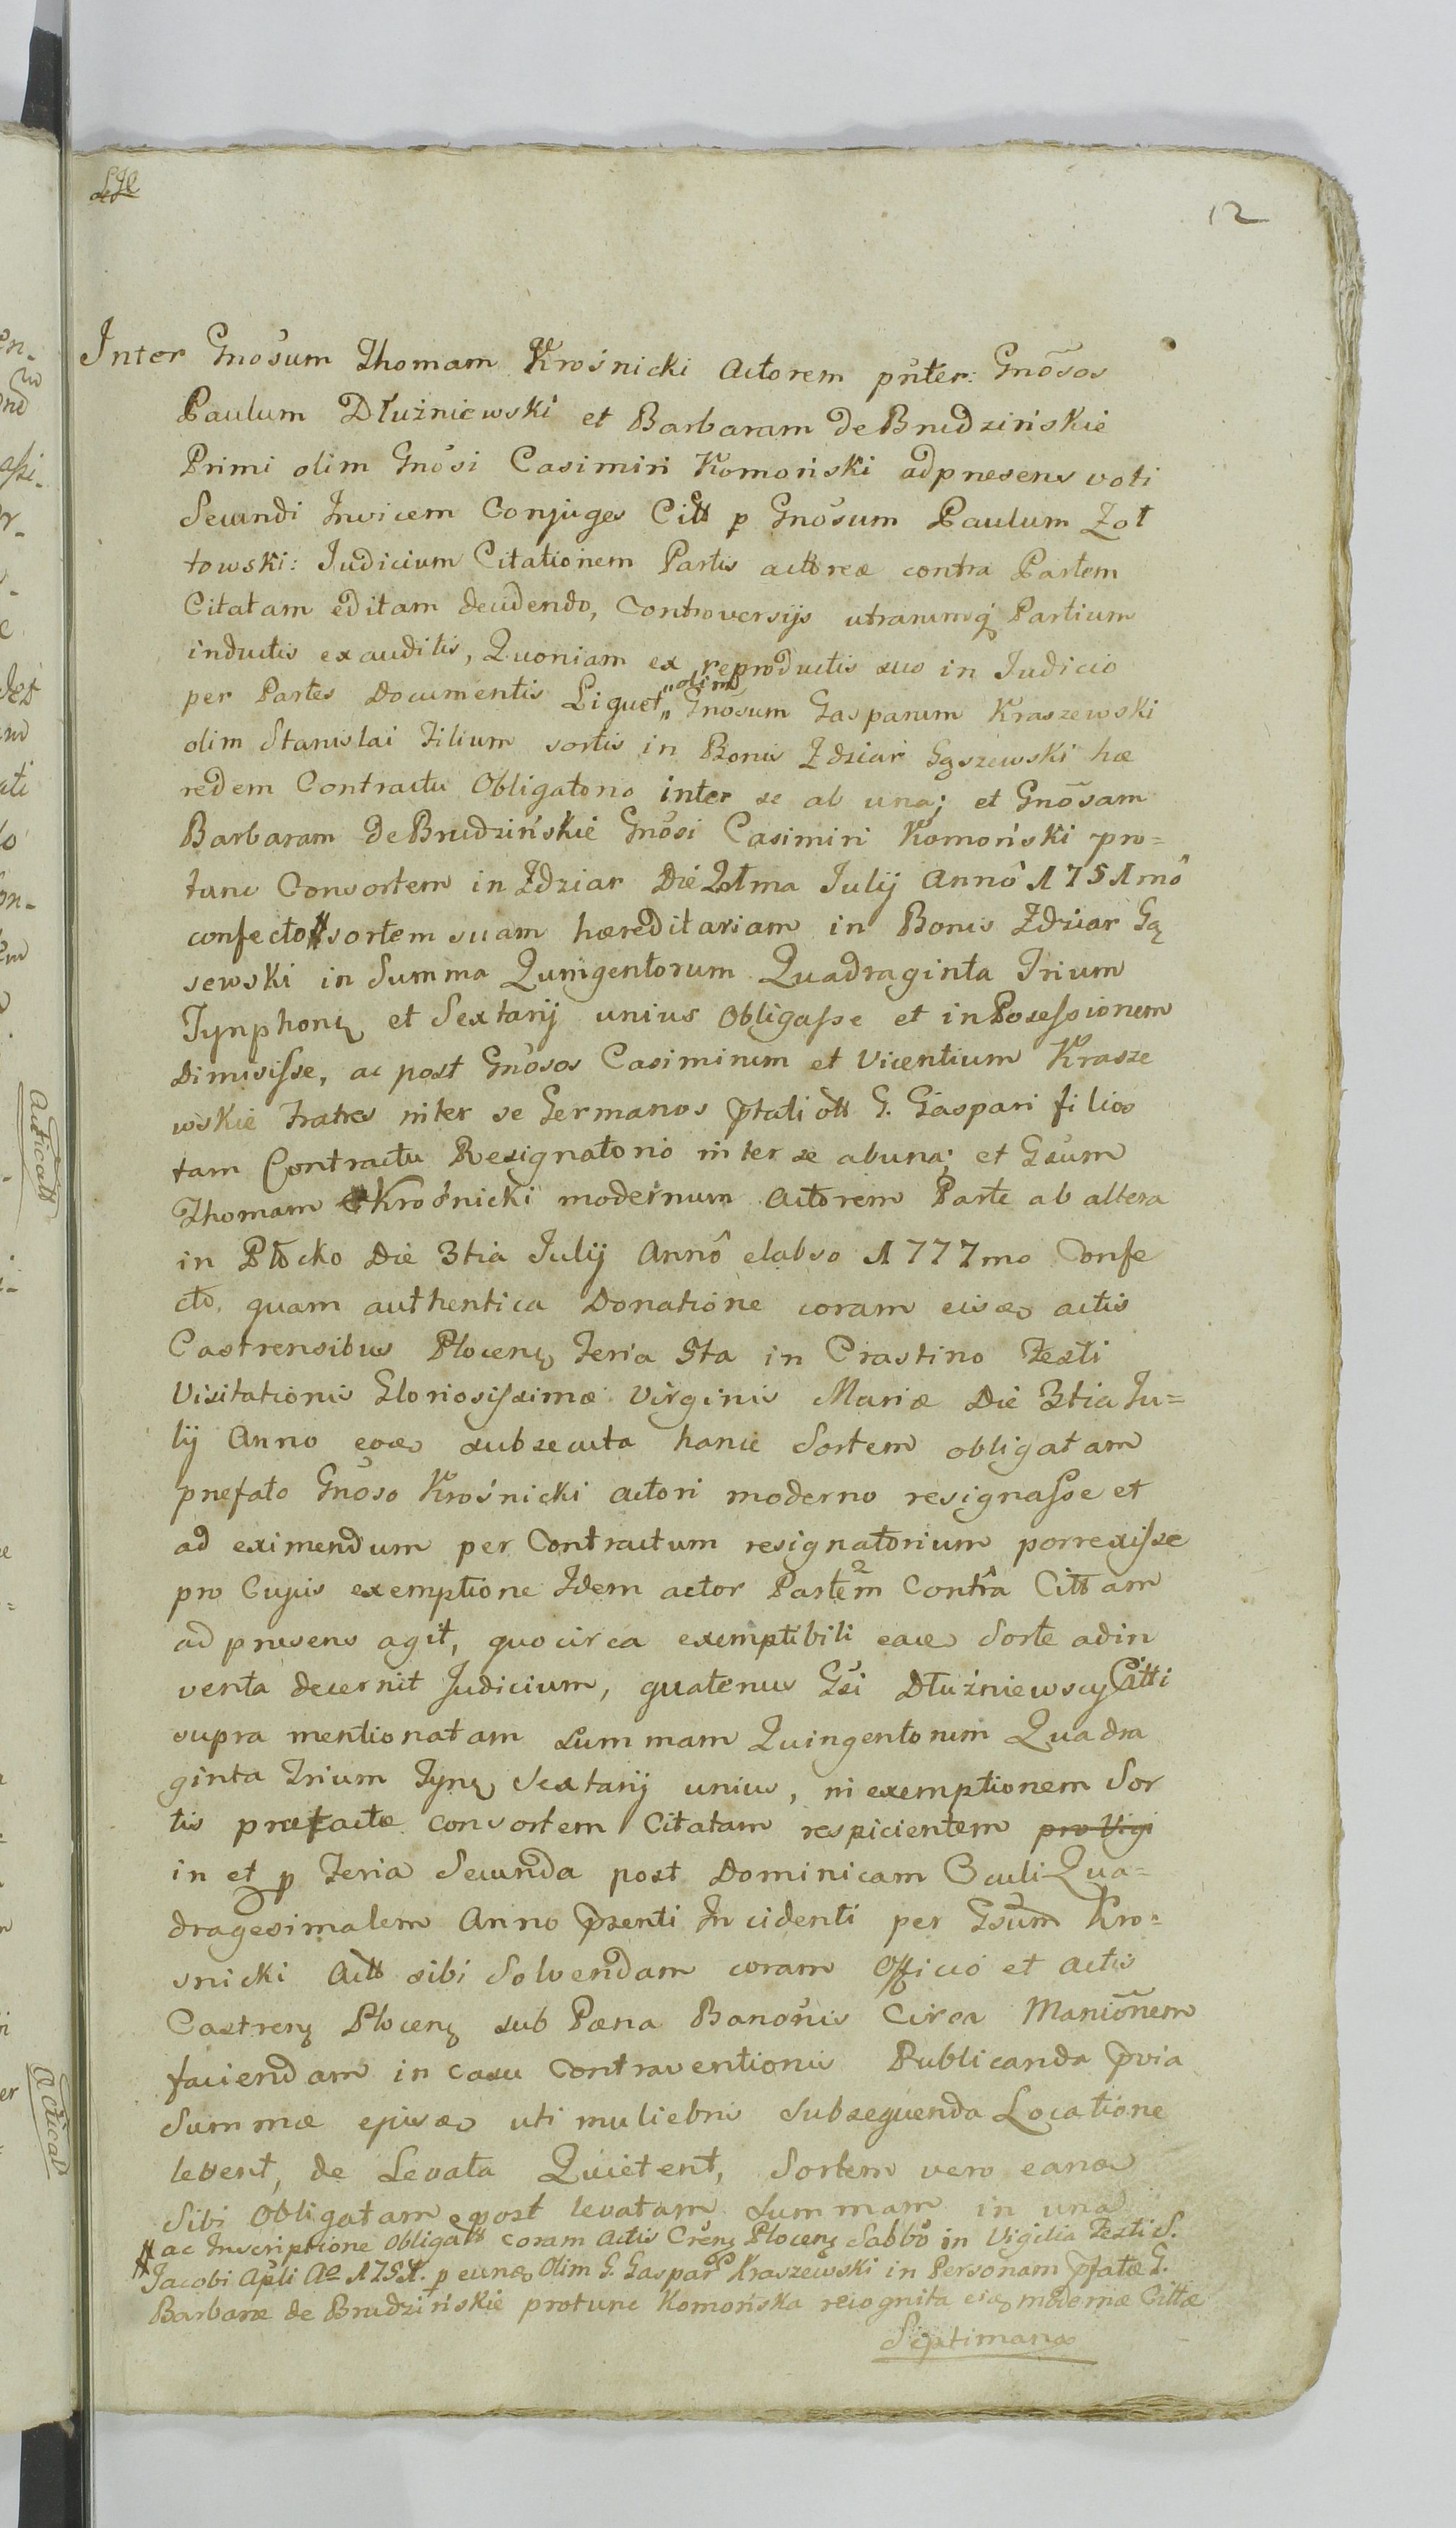 12
Inter Gnõsum Thomam Krośnicki Actorem pñter: Gnõsos
Paulum Dłużniewski et Barbaram de Brudzińskie
Primi olim Gnõsi Casimiri Komoński ad presens voti
Secundi Invicem Conjuges Citt p Gnõsum Paulum Zoł
towski: Iudicium Citationem Partis actoreæ contra Partem
Citatam editam decidendo, Controversijs utrarumq́ Partium
inductis exauditis, Quoniam ex reproductis suo in Iudicio
per Partes Documentis Liquet „olim„ Gnõsum Gasparum Kraszewski
olim Stanislai Filium sortis in Bonis Zdziar Gąszewski hæ
redem Contractu Obligatorio inter se ab una; et Gnõsam
Barbaram de Brudzińskie Gnõsi Casimiri Komoński pro=
tunc Consortem in Zdziar Die Istma Iulij Annô 1751mô
confecto # sortem suam hæreditariam in Bonis Zdziar Gą
sewski in Summa Quingentorum Quadraginta Trium
Tynphonȝ et Sextarij unius Obligasse et in Posessionem
Dimisisse, ac post Gnõsos Casimirum et Vicentium Krasze
wskie Fratres inter se Germanos pttati ott G. Gaspari filios
tam Contractu Resignatorio inter se ab una; et Gsum
Thomam Krośnicki modernum Actorem Parte ab altera
in Płocko Die 3tia Iulij Annô elabso 1777mo Confe
cto, quam authentica Donatione coram eisdẽ actis
Castrensibus Plocenȝ Feria 5ta in Crastino Festi
Visitationis Gloriosissimæ Virginis Mariæ Die 3tia Iu=
lij Anno eoẽ subsecuta hanc Sortem obligatam
prefato Gnõso Krośnicki actori moderno resignasse et
ad eximendum per Contractum resignatorium porrexisse
pro Cujus exemptione Idem actor Partem Contra Cittam
ad presens agit, quocirca exemptibili eaẽ Sorte adin
venta decernit Judicium, quatenus Gsi Dłużniewscy Citti
supra mentionatam summam Quingentorum Quadra
ginta Trium Tynȝ Sextarij unius, in exemptionem Sor
tis præfactæ consortem Citatam respicientem pro Vigi
in et p Feria Secunda post Dominicam Oculi Qua=
dragesimalem Anno pzenti Incidenti per Gsum Kro=
snicki Actt sibi Solvendam coram Officio et Actis
Castrenȝ Plocenȝ sub Pœna Banõnis Circa Maniõnem
faciendam in casu Contraventionis Publicanda pvia
Summæ ejusdẽ uti muliebris Subsequenda Locatione
levent, de Levata Quietent, Sortem vero eanẽ
Sibi Obligatam post levatam Summam in una
# ac Inscriptione Obligatt coram Actis Crẽnȝ Plocenȝ Sabbõ in Vigilia Festi S.
Jacobi Apli Aº 1751. p eunẽ Olim G. Gaspar Kraszewski in Personam pfatæ G.
Barbaræ de Brudzińskie protunc Komońska recognita ejȝ modernæ Cittæ
Septimanæ
Acticatt
Acticat